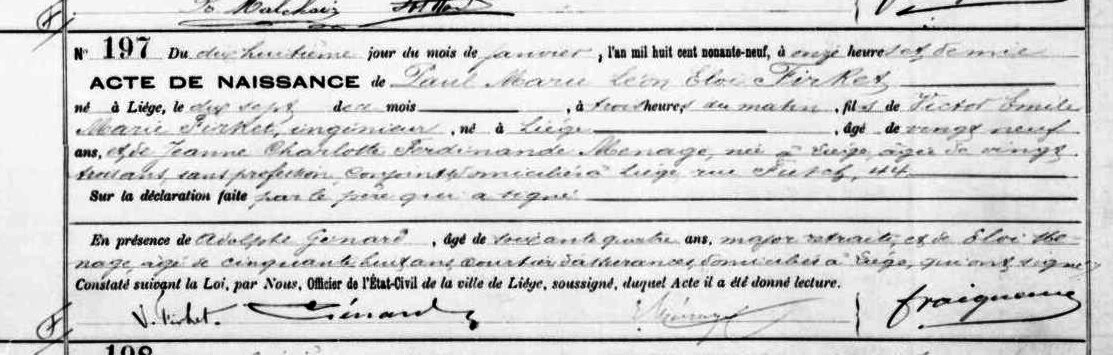 N° 197 Du dix huitième jour du mois de janvier, l'an mil huit cent nonante-neuf, à onze heures et demie
ACTE DE NAISSANCE de Paul Marie Léon Eloi Firket
né à Liége, le dix sept de ce mois, à trois heures du matin, fils de Victor Emile
Marie Firket, ingénieur, né à Liége, âgé de vingt neuf
ans, et de Jeanne Charlotte Ferdinande Menage, née à Liége, âgée de vingt
trois ans sans profession, conjoints domiciliés à Liége, rue Fusch, 44
Sur la déclaration faite par le père qui a signé
En présence de Adolphe Génard, âgé de soixante quatre ans, major retraité, et de Eloi Me-
nage, âgé de cinquante huit ans, courtier d'assurances, domiciliés à Liége, qui ont signé
Constaté suivant la Loi, par Nous, Officier de l'État-Civil de la ville de Liége, soussigné, duquel Acte il a été donné lecture.
V. Firket. Génard
198